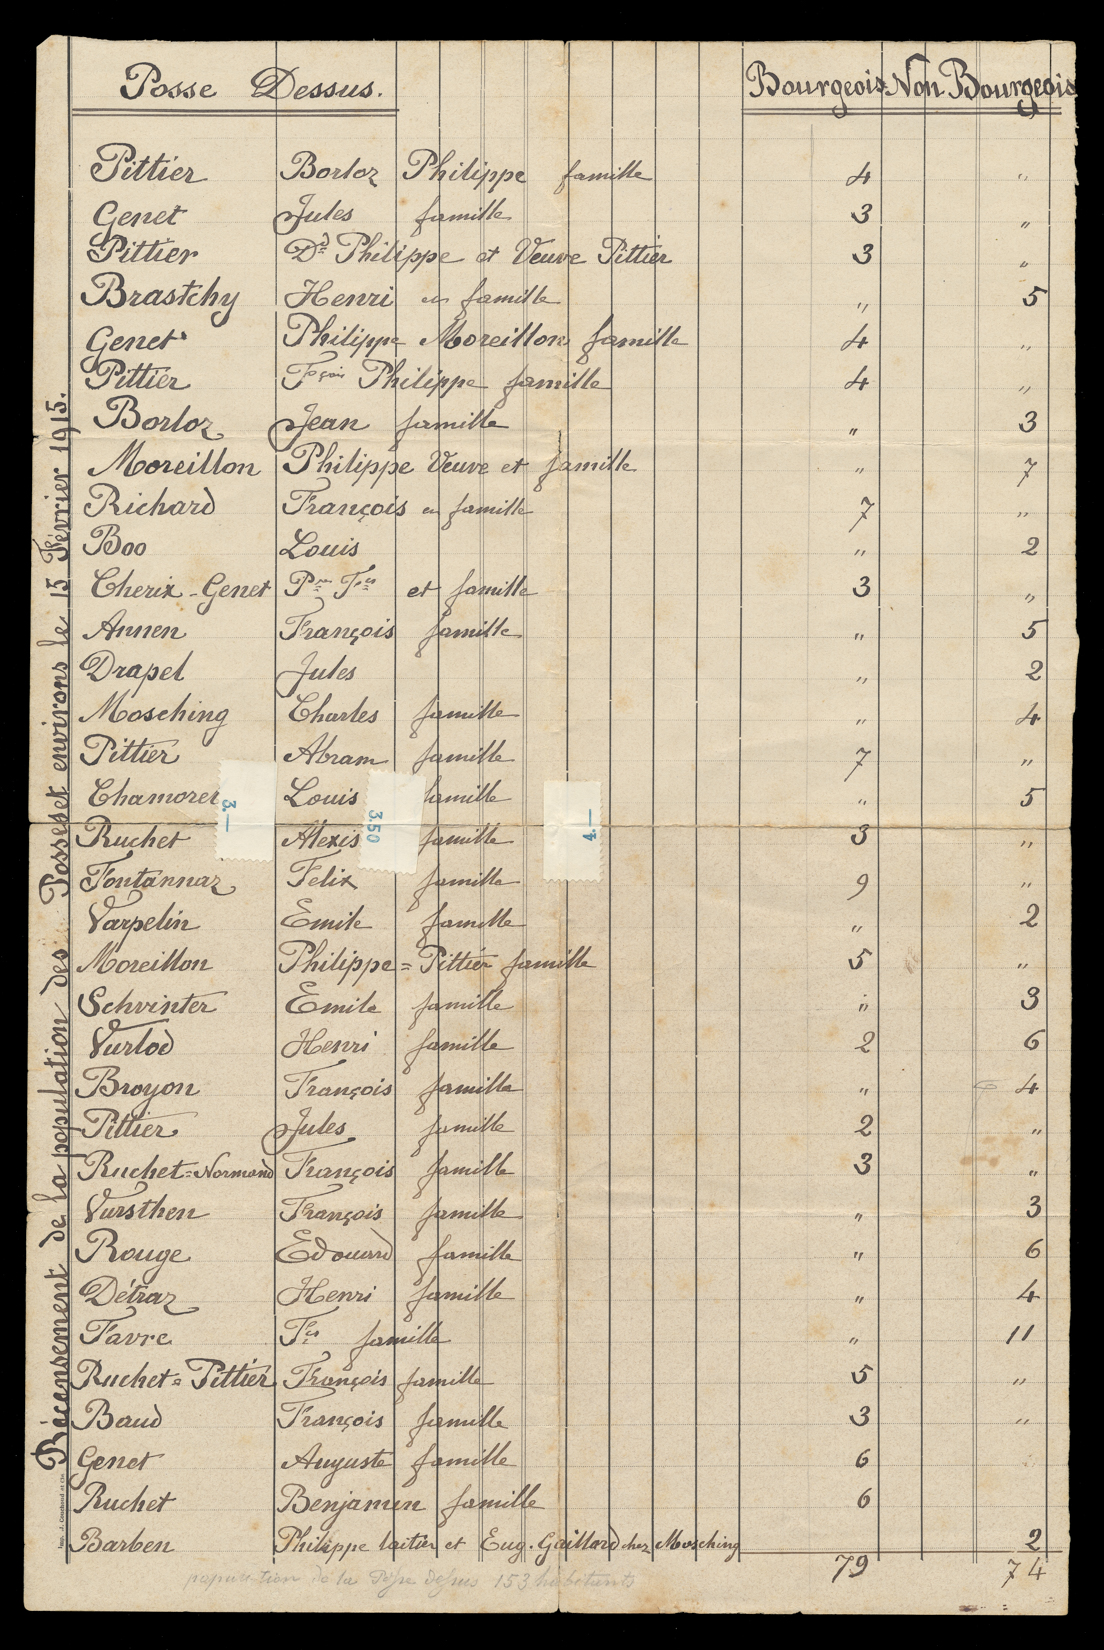 Posse Dessus.
Bourgeois Non Bourgeois
Pittier Borloz Philippe famille 4 "
Genet Jules famille 3 "
Pittier Dd Philippe et Veuve Pittier 3 "
Brastchy Henri en famille " 5
Genet Philippe Moreillon famille 4 "
Pittier Fçois Philippe famille 4 "
Borloz Jean famille " 3
Moreillon Philippe Veuve et famille " 7
Richard François en famille 7 "
Boo Louis " 2
Cherix-Genet et famille 3 "
Annen François famille " 5
Drapel Jules " 2
Mosching Charles famille " 4
Pittier Abram famille 7 "
Chamorel Louis famille " 5
Ruchet Alexis famille 3 "
Fontannaz Felix famille 9 "
Varpelin Emile famille " 2
Moreillon Philippe=Pittier famille 5 "
Schvinter Emile famille " 3
Vurlod Henri famille 2 6
Broyon François famille " 4
Pittier Jules famille 2 "
Ruchet=Normand François famille 3 "
Vursthen François famille " 3
Rouge Edouard famille " 6
Détraz Henri famille " 4
Favre Fçs famille " 11
Ruchet=Pittier François famille 5 "
Baud François famille 3 "
Genet Auguste famille 6
Ruchet Benjamin famille 6
Barben Philippe laitier et Eug. Gaillard chez Mosching 2
79 74
population de la Posse dessus 153 habitants
Récensement de la population des Posses et environs le 15 Février 1915.
3.—
3.50
4.—